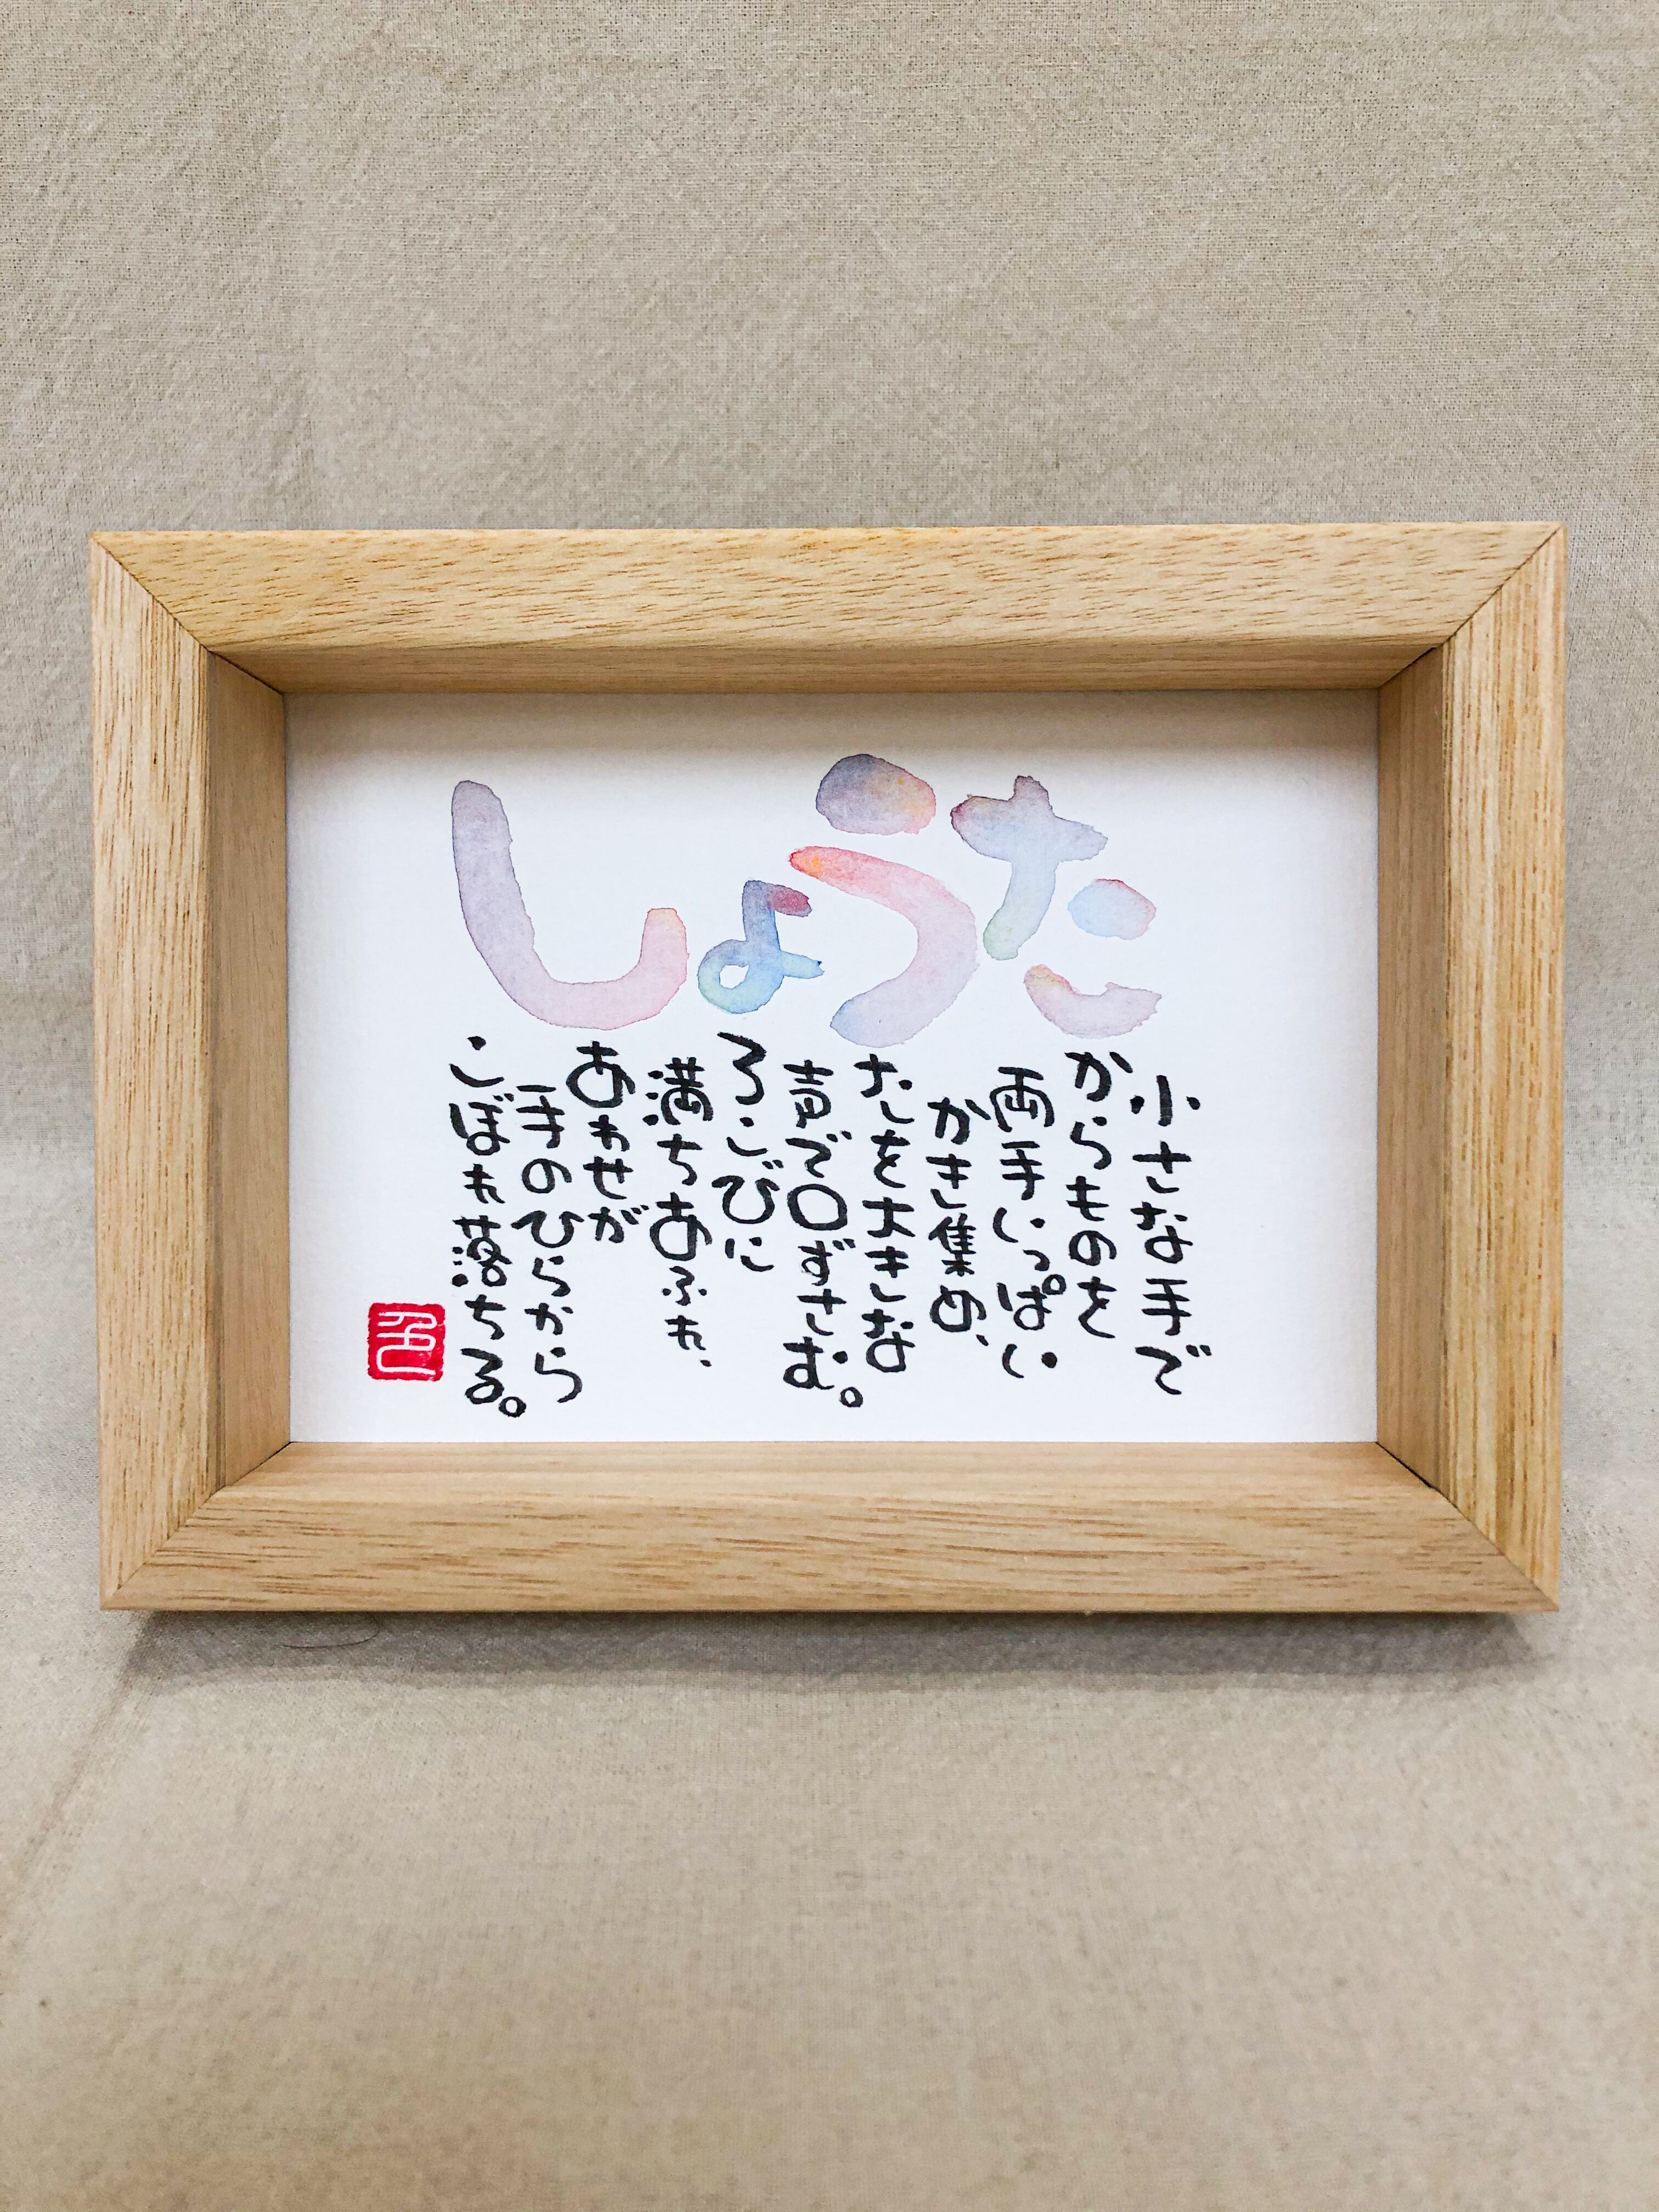 しょうた
小さな手で
からものを
両手いっぱい
かき集め、
たを大きな
声で口ずさむ。
ろこびに
満ちあふれ、
あわせが
手のひらから
こぼれ落ちる。